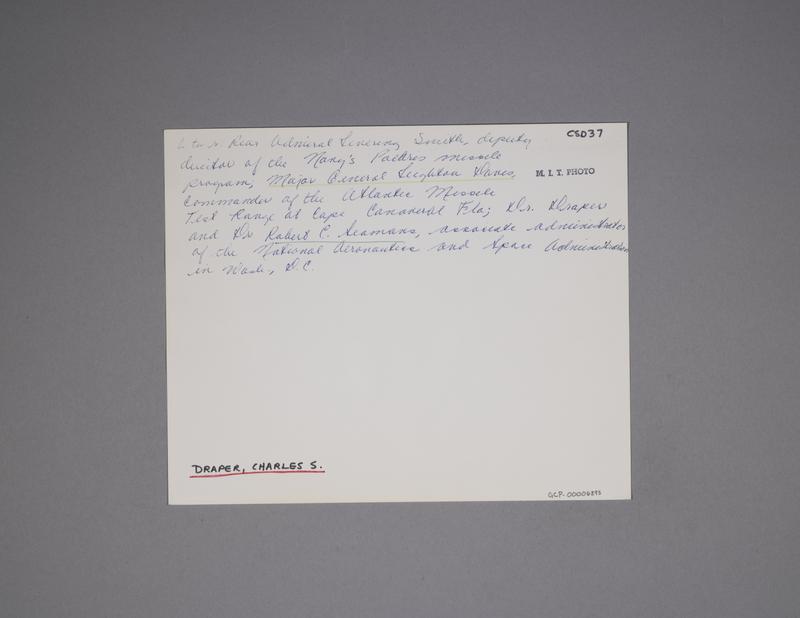 L to r. Rear Admiral Levering Smith, deputy
director of the Navy's Polaris missile
program; Major General Leighton Davis,
Commander of the Atlantic Missile
Test Range at Cape Canaveral Fla; Dr. Draper
and Dr Robert C. Seamans, associate administrator
of the National Aeronautics and Space Administration
in Wash, D.C.
CSD37
M.I.T. PHOTO
DRAPER, CHARLES S.